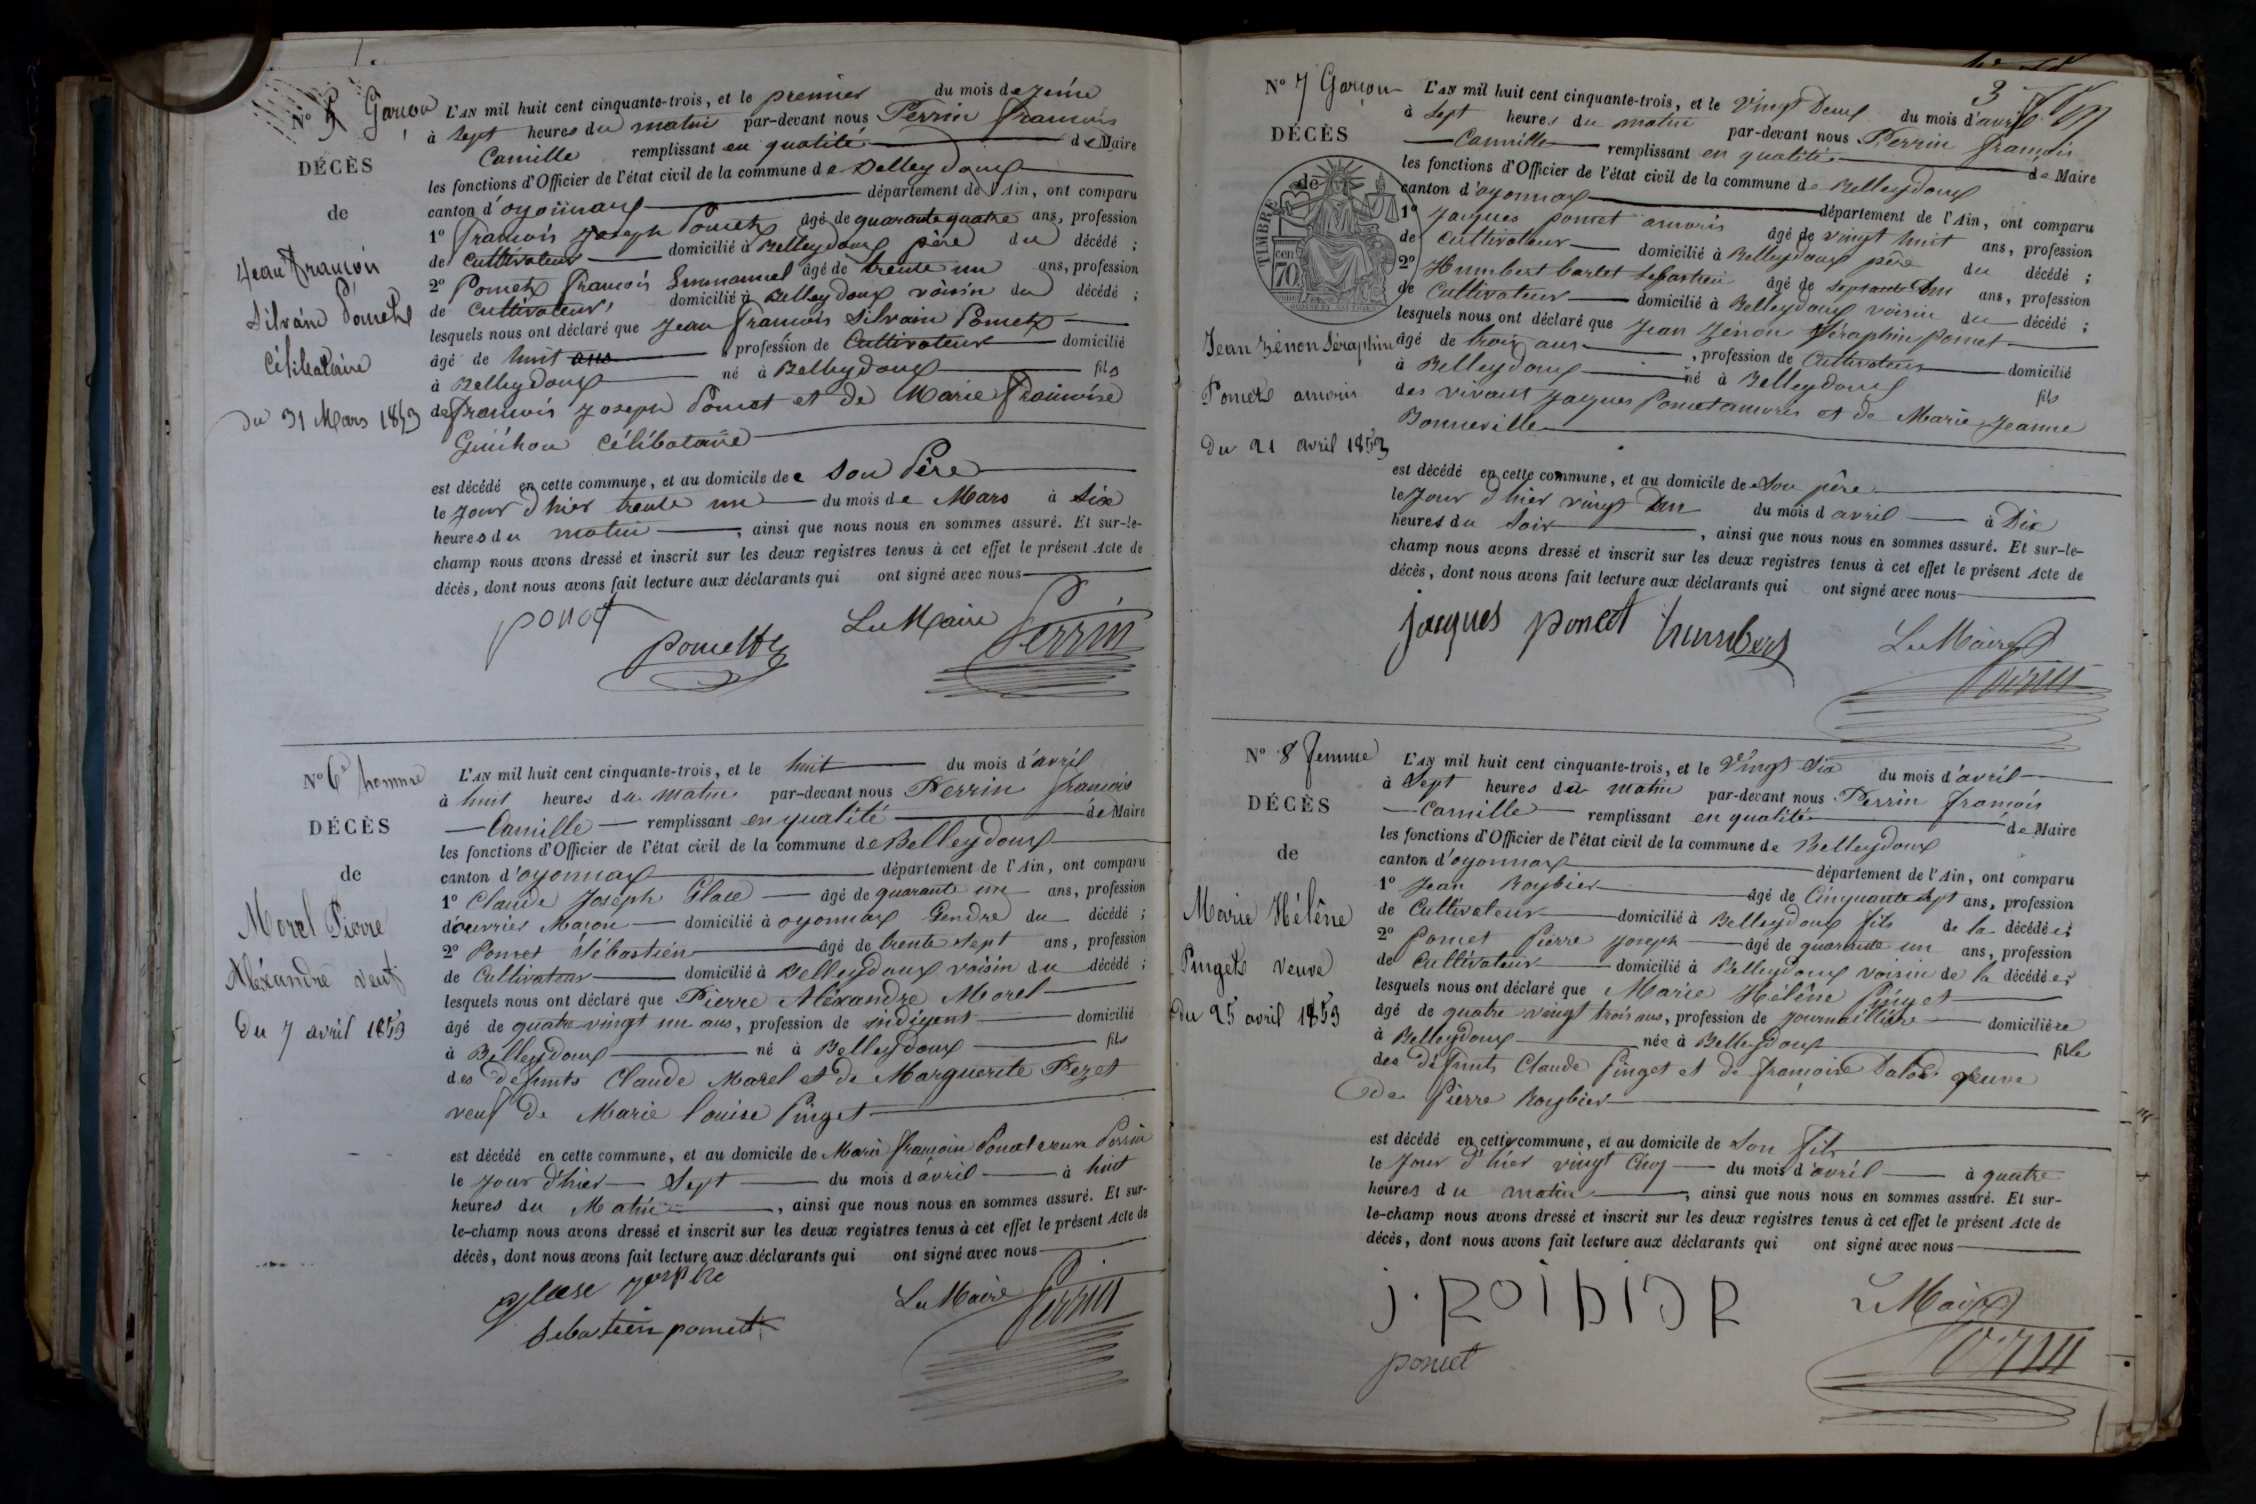 N° 5 Garçon
DÉCÈS
de
Jean françois
Silvain Pometz
Célibataire
du 31 Mars 1853
L'AN mil huit cent cinquante-trois, et le premier du mois de
à sept heures du matin par-devant nous Perrin françois
Camille remplissant en qualité de Maire
les fonctions d'Officier de l'état civil de la commune de Belleydoux
canton d'oyonnax département de l'Ain, ont comparu
1° françois Joseph Pometz âgé de quarante quatre ans, profession
de Cultivateur domicilié à Belleydoux père du décédé ;
2° Pometz françois Emmanuel âgé de trente un ans, profession
de Cultivateur domicilié à Belleydoux voisin du décédé ;
lesquels nous ont déclaré que Jean françois Silvain Pometz
âgé de huit ans, profession de Cultivateur domicilié
à Belleydoux né à Belleydoux fils
de françois Joseph Pomet et de Marie françoise
Célibataire
est décédé en cette commune, et au domicile de son Père
le jour d'hier trente un du mois de Mars à Six
heures du matin, ainsi que nous nous en sommes assuré. Et sur-le-
champ nous avons dressé et inscrit sur les deux registres tenus à cet effet le présent Acte de
décès, dont nous avons fait lecture aux déclarants qui ont signé avec nous
pomet
Le Maire
Perrin
N° 6 homme
DÉCÈS
de
Morel Pierre
Aléxandre veuf
Du 7 avril 1853
L'AN mil huit cent cinquante-trois, et le huit du mois d'avril
à huit heures du matin par-devant nous Perrin françois
Camille remplissant en qualité de Maire
les fonctions d'Officier de l'état civil de la commune de Belleydoux
canton d'oyonnax département de l'Ain, ont comparu
1° Claude Joseph Glase âgé de quarante un ans, profession
d'ouvrier Maçon domicilié à oyonnax Gendre du décédé ;
2° Pomet Sébastien âgé de trente sept ans, profession
de Cultivateur domicilié à Belleydoux voisin du décédé ;
lesquels nous ont déclaré que Pierre Aléxandre Morel
âgé de quatre vingt un ans, profession de indigent domicilié
à Belleydoux né à Belleydoux fils
des défunts Claude Morel et de Marguerite Perzet
veuf de Marie louise Pinget
est décédé en cette commune, et au domicile de Marie françoise Pomet veuve Perrin
le jour d'hier Sept du mois d'avril à huit
heures du Matin, ainsi que nous nous en sommes assuré. Et sur-
le-champ nous avons dressé et inscrit sur les deux registres tenus à cet effet le présent Acte de
décès, dont nous avons fait lecture aux déclarants qui ont signé avec nous
glase josephe
Le Maire
Perrin
sebastien pomet
3
N° 7 Garçon
DÉCÈS
de
TIMBRE
70
Jean Zénon Séraphin
Pometz amoris
Du 21 avril 1853
L'AN mil huit cent cinquante-trois, et le vingt Deux du mois d'avril
à Sept heures du matin par-devant nous Perrin françois
Camille remplissant en qualité de Maire
les fonctions d'Officier de l'état civil de la commune de Belleydoux
canton d'oyonnax département de l'Ain, ont comparu
1° Jacques pomet amoris âgé de vingt huit ans, profession
de Cultivateur domicilié à Belleydoux père du décédé ;
2° Humbert barlet Sebastien âgé de ans, profession
de Cultivateur domicilié à Belleydoux voisin du décédé ;
lesquels nous ont déclaré que Jean Zénon Séraphin pomet
âgé de trois ans, profession de Cultivateur domicilié
à Belleydoux né à Belleydoux fils
des vivants Jacques Pomet amoris et de Marie Jeanne
Bonneville
est décédé en cette commune, et au domicile de son père
le jour d'hier vingt un du mois d'avril à Dix
heures du Soir, ainsi que nous nous en sommes assuré. Et sur-le-
champ nous avons dressé et inscrit sur les deux registres tenus à cet effet le présent Acte de
décès, dont nous avons fait lecture aux déclarants qui ont signé avec nous
jacques pomet humbert
Le Maire
Perrin
N° 8 femme
DÉCÈS
de
Marie Hélêne
Pingetz veuve
du 25 avril 1853
L'AN mil huit cent cinquante-trois, et le Vingt Six du mois d'avril
à Sept heures du matin par-devant nous Perrin françois
Camille remplissant en qualité de Maire
les fonctions d'Officier de l'état civil de la commune de Belleydoux
canton d'oyonnax département de l'Ain, ont comparu
1° Jean Roybier âgé de Cinquante sept ans, profession
de Cultivateur domicilié à Belleydoux fils de la décédée ;
2° Pomet Pierre Joseph âgé de quarante un ans, profession
de Cultivateur domicilié à Belleydoux voisin de la décédée ;
lesquels nous ont déclaré que Marie Hélêne Pinget
âgé de quatre vingt trois ans, profession de journallière domiciliée
à Belleydoux née à Belleydoux fille
des défunts Claude Pinget et de françoise veuve
de Pierre Roybier
est décédé en cette commune, et au domicile de Son fils
le jour d'hier vingt Cinq du mois d'avril à quatre
heures du matin, ainsi que nous nous en sommes assuré. Et sur-
le-champ nous avons dressé et inscrit sur les deux registres tenus à cet effet le présent Acte de
décès, dont nous avons fait lecture aux déclarants qui ont signé avec nous
j. Roibier
Le Maire
pomet
Perrin